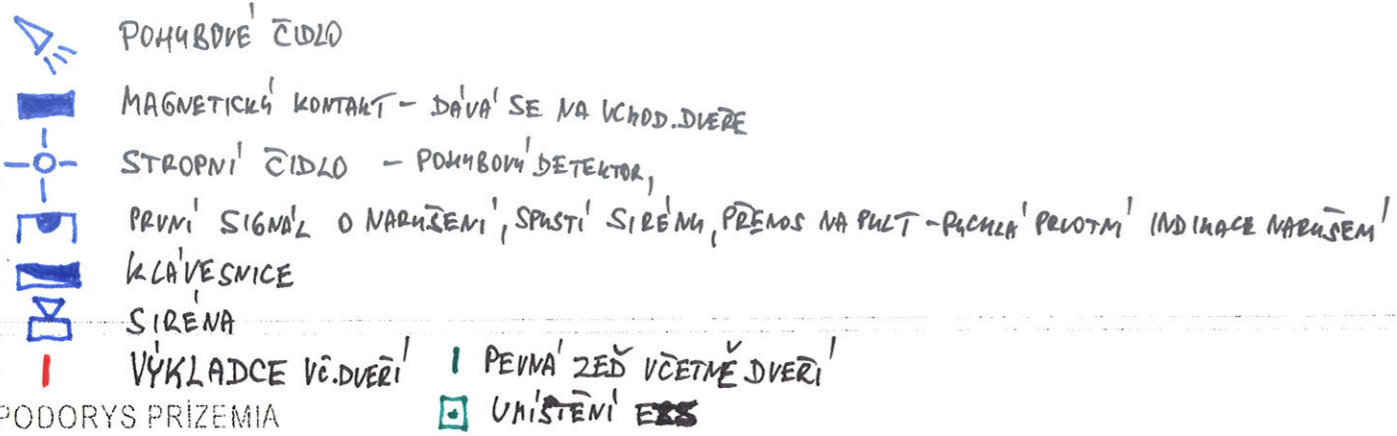 POHYBOVÉ ČIDLO
MAGNETICKÝ KONTAKT - DÁVÁ SE NA VCHOD. DVEŘE
STROPNÍ ČIDLO - POHYBOVÝ DETEKTOR,
PRVNÍ SIGNÁL O NARUŠENÍ, SPUSTÍ SIRÉNU, PŘENOS NA PULT - RYCHLÁ PRVOTNÍ INDIKACE NARUŠENÍ
KLÁVESNICE
SIRÉNA
VÝKLADCE VČ. DVEŘÍ
PEVNÁ ZEĎ VČETNĚ DVEŘÍ
PODORYS PRÍZEMIA
UMÍSTĚNÍ